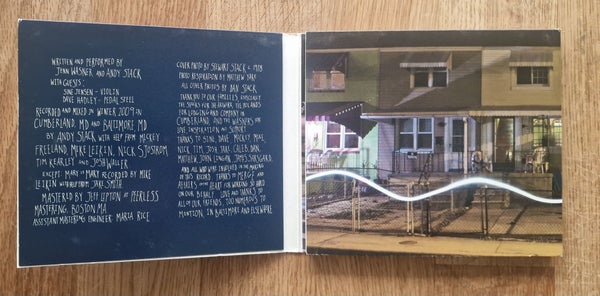 WRITTEN AND PERFORMED BY
JENN WASNER AND ANDY STACK
WITH GUESTS:
SUNE JENSEN - VIOLIN
DAVE HADLEY - PEDAL STEEL
RECORDED AND MIXED IN WINTER 2009 IN
CUMBERLAND, MD AND BALTIMORE, MD
BY ANDY STACK WITH HELP FROM MICKEY
FREELAND, MIKE LEIKIN, NICK SJOSTROM,
TIM KEARLEY AND JOSH WALLER
EXCEPT: MARY IS MARY RECORDED BY MIKE
LEIKIN WITH HELP FROM JAKE SMITH
MASTERED BY JEFF LIPTON AT PEERLESS
MASTERING, BOSTON MA
ASSISTANT MASTERING ENGINEER MARIA RICE
COVER PHOTO BY STEWART STACK
PHOTO RESTORATION BY MATTHEW
ALL OTHER PHOTOS BY DAN STACK
THANK YOU TO OUR FAMILIES
THE STACKS FOR THE
FOR LODGING AND COMPANY IN
CUMBERLAND, AND THE WASNERS FOR
LOVE, INSPIRATION AND SUPPORT
THANKS TO SUNE, DAVE, MICKEY, MIKE,
NICK, TIM, JOSH, JAKE, CALEB, DAN,
MATTHEW, JOHN
AND ALL WHO WERE INVOLVED IN THE MAKING
OF THIS RECORD. THANKS TO MERGE AND
AFFAIRS OF THE HEART FOR WORKING SO HARD
ON OUR BEHALF. LOVE AND THANKS TO
ALL OF OUR FRIENDS, TOO NUMEROUS TO
MENTION, IN BALTIMORE AND ELSEWHERE